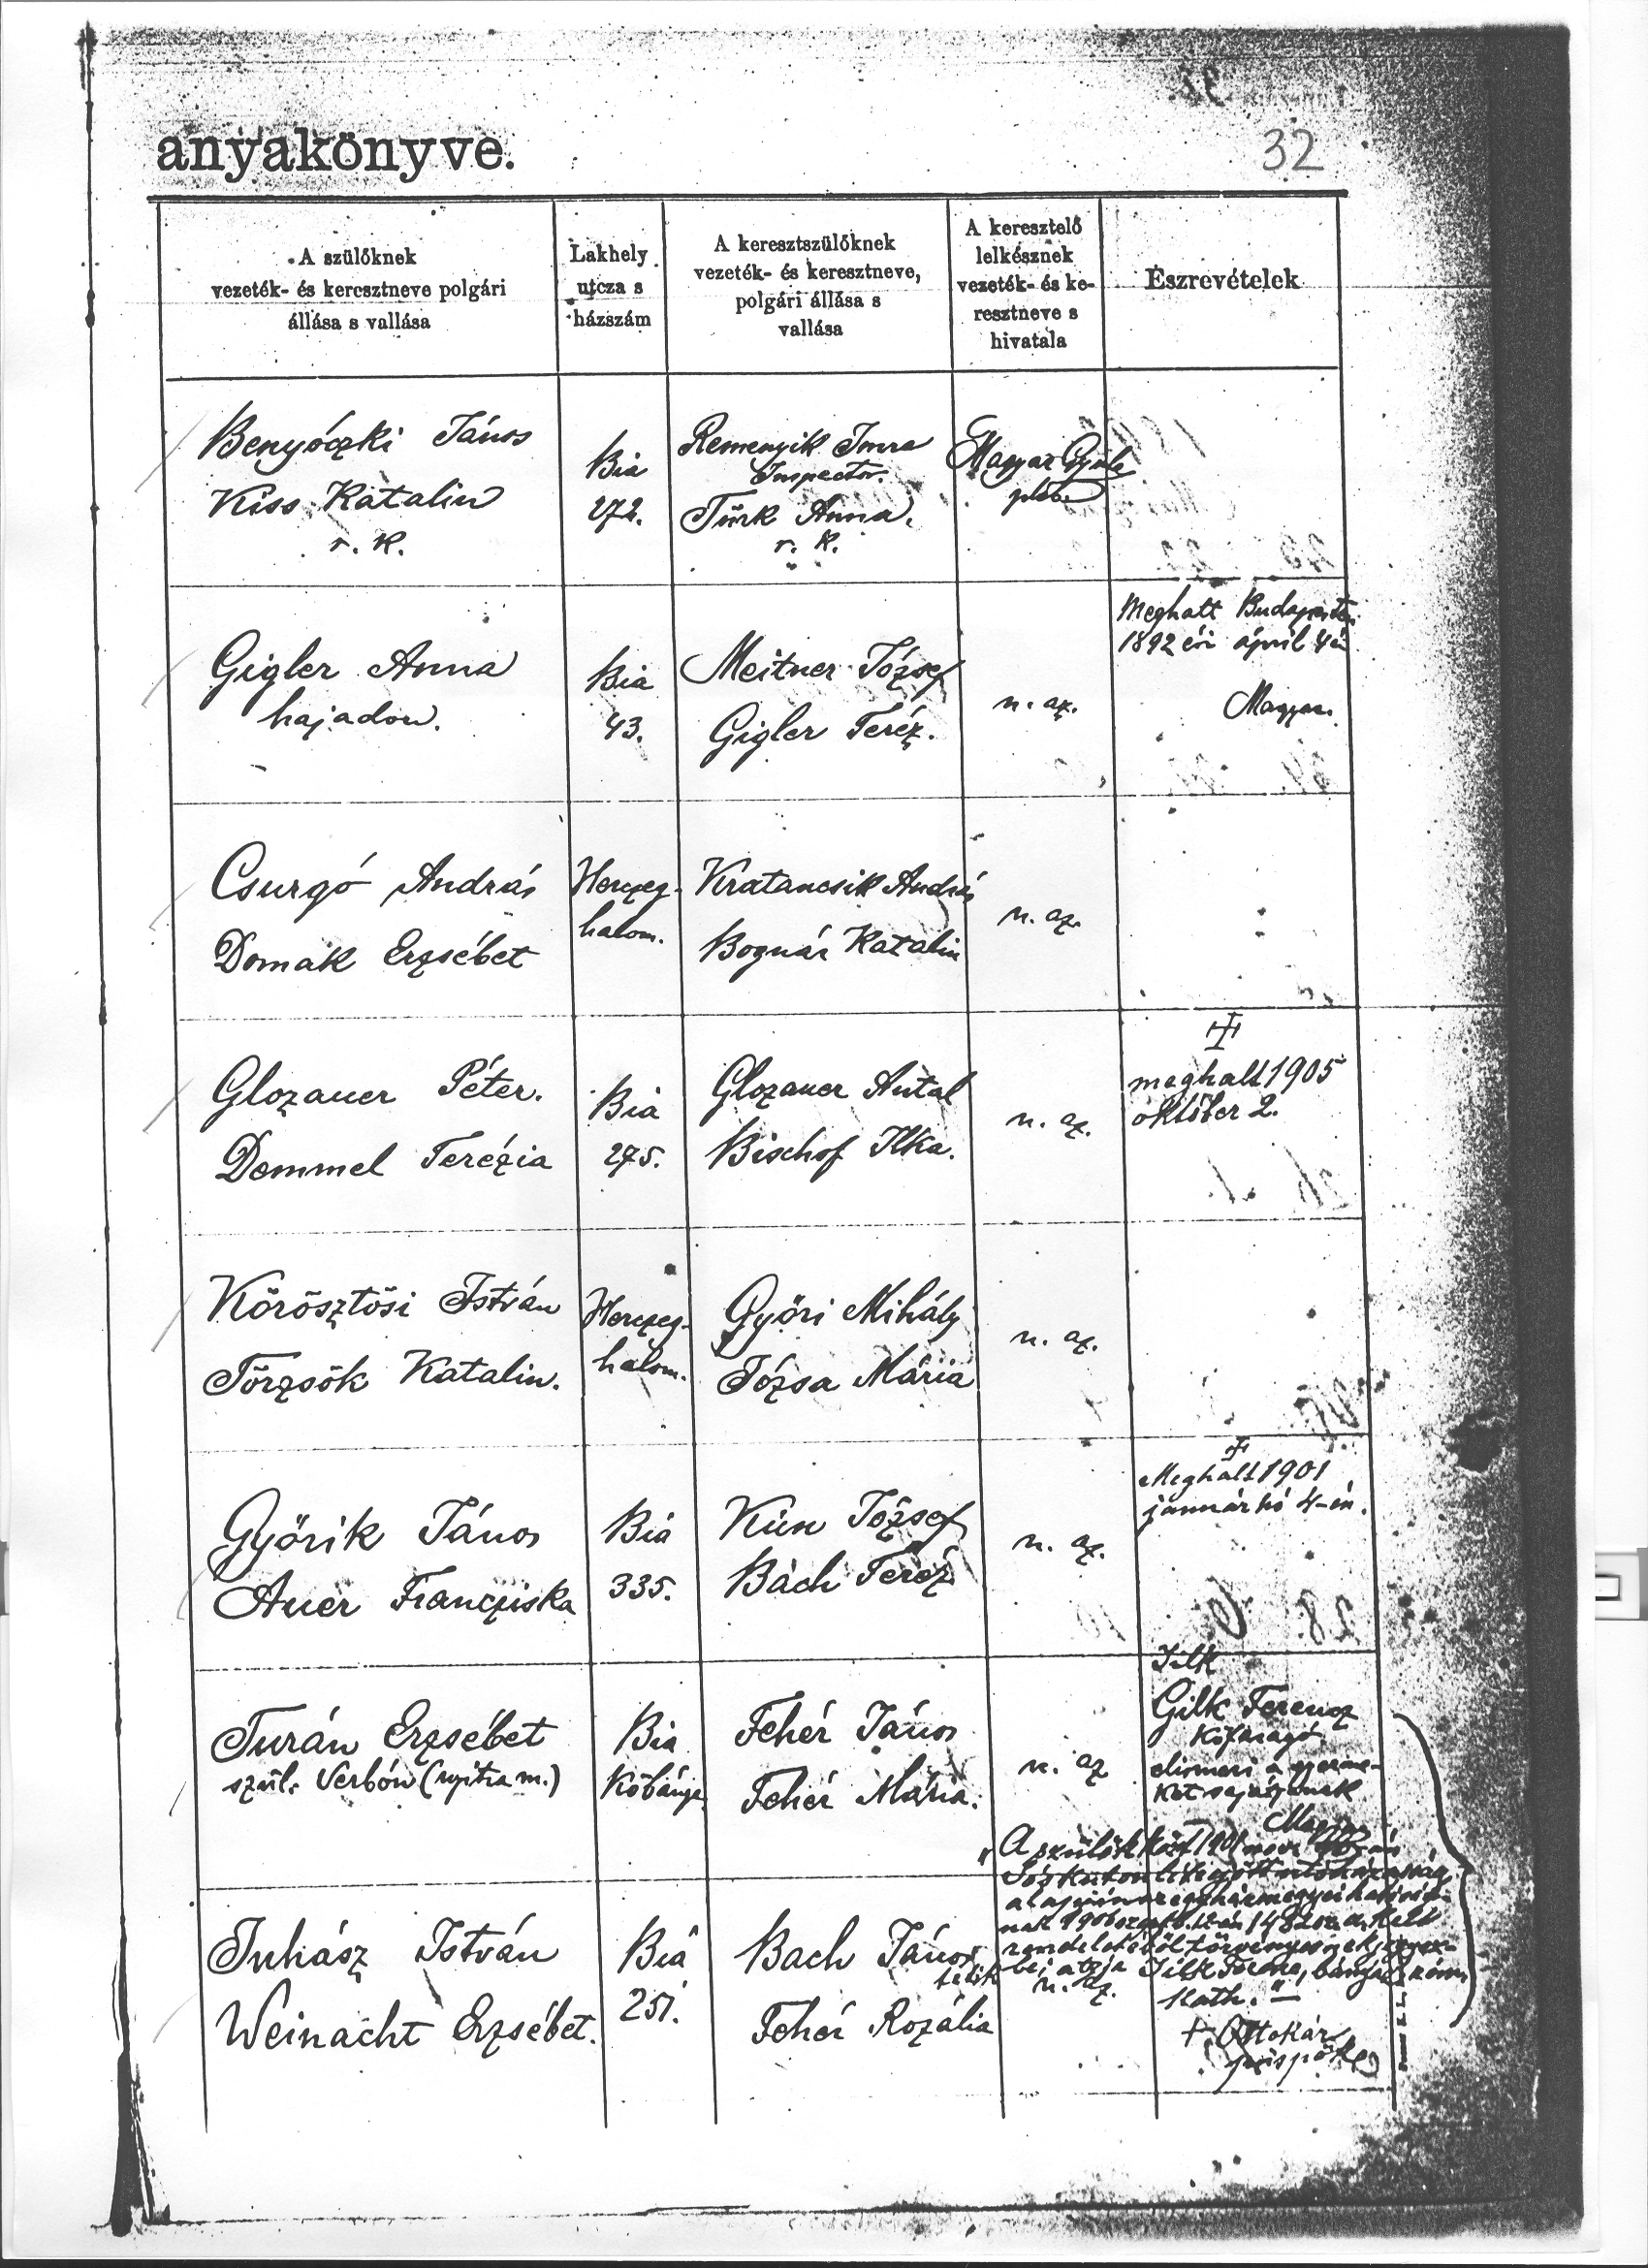 32
anyakönyve.
A szülőknek
vezeték- és keresztneve polgári
állása s vallása
Lakhely
utcza s
házszám
A keresztszülőknek
vezeték- és keresztneve,
polgári állása s
vallása
A keresztelő
lelkésznek
vezeték- és ke-
resztneve s
hivatala
Észrevételek
Benyóczki János
Kiss Katalin
r. k.
Bia
272.
Remenyik Imre
Inspector.
Türk Anna.
r. k.
Magyar Gyula
pléb.
Gigler Anna
hajadon.
Bia
43.
Meitner József
Gigler Teréz.
n. az.
Meghalt Budapesten
1892 évi április 4én
Magyar.
Csurgó András
Domak Erzsébet
Herczeg-
halom.
Kratancsik András
Bognár Katalin
n. az.
Glozauer Péter.
Demmel Terézia
Bia
275.
Glozauer Antal
Bischof Ilka.
n. az.
meghalt 1905
október 2.
Körösztösi István
Törzsök Katalin.
Herczeg-
halom.
Győri Mihály
Józsa Mária
n. az.
Győrik János
Auer Francziska
Bia
335.
Kún József
Bach Teréz
n. az.
Meghalt 1901
január hó 4-én.
Turán Erzsébet
szül. Verbón (nyitra m.)
Bia
Kőbánya
Fehér János
Fehér Mária.
n. az
Jilk
Gilk Ferencz
Kőfaragó
elismeri a gyerme-
ket sajátjának
"A szülők közt 1901 nov.
rendeletéből törvényes
bejátzja Jilk Ferenc, bányász róm.
kath."
+ Ottokár
püspök
Juhász István
Weinacht Erzsébet.
Bia
251.
Bach János
Fehér Rozália
n. az.